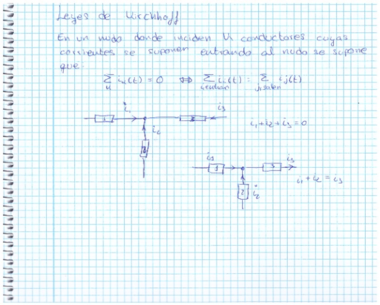 Leyes de Kirchhoff
En un nudo donde inciden N conductores cuyas
corrientes se suponen entrando al nudo se supone
que.
∑ i(t) = 0 ⇔ ∑ i(t) = ∑ j(t)
i₁ i₃
i₁ + i₂ + i₃ = 0
i₂
i₃
i₁ + i₂ = i₃